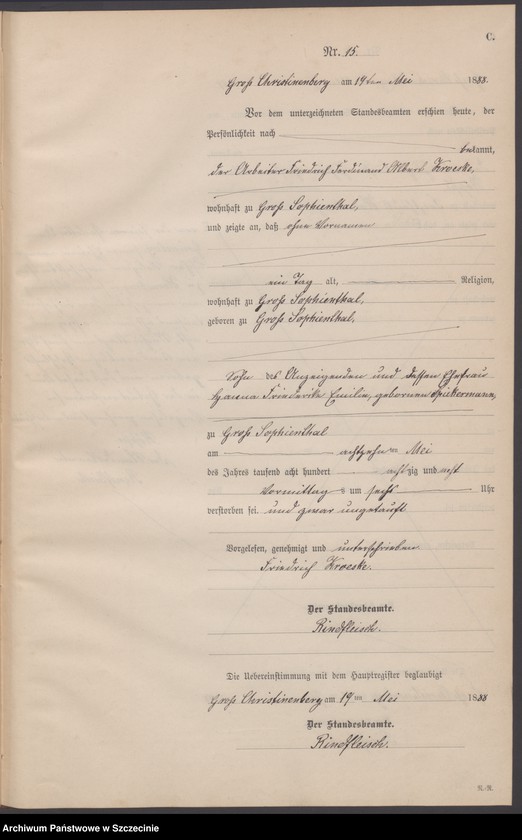 C.
Nr. 15.
Groß Christinenberg am 19ten Mei 1888.
Vor dem unterzeichneten Standesbeamten erschien heute, der
Persönlichkeit nach
bekannt,
der Arbeiter Friedrich Ferdinand Albert Kroeske,
wohnhaft zu Groß Sophienthal,
und zeigte an, daß ohne Vornamen
ein Tag alt, Religion,
wohnhaft zu Groß Sophienthal,
geboren zu Groß Sophienthal,
Sohn des Anzeigenden und dessen Ehefrau
Hanna Friederike Emilie, gebornen Spickermann,
zu Groß Sophienthal
am achtzehnten Mei
des Jahres tausend acht hundert achtzig und acht
Vormittags um sechs Uhr
verstorben sei. und zwar ungetauft
Vorgelesen, genehmigt und unterschrieben
Friedrich Kroeske.
Der Standesbeamte.
Rindfleisch.
Die Uebereinstimmung mit dem Hauptregister beglaubigt
Groß Christinenberg am 19ten Mei 1888
Der Standesbeamte.
Rindfleisch.
R.-R.
Archiwum Państwowe w Szczecinie